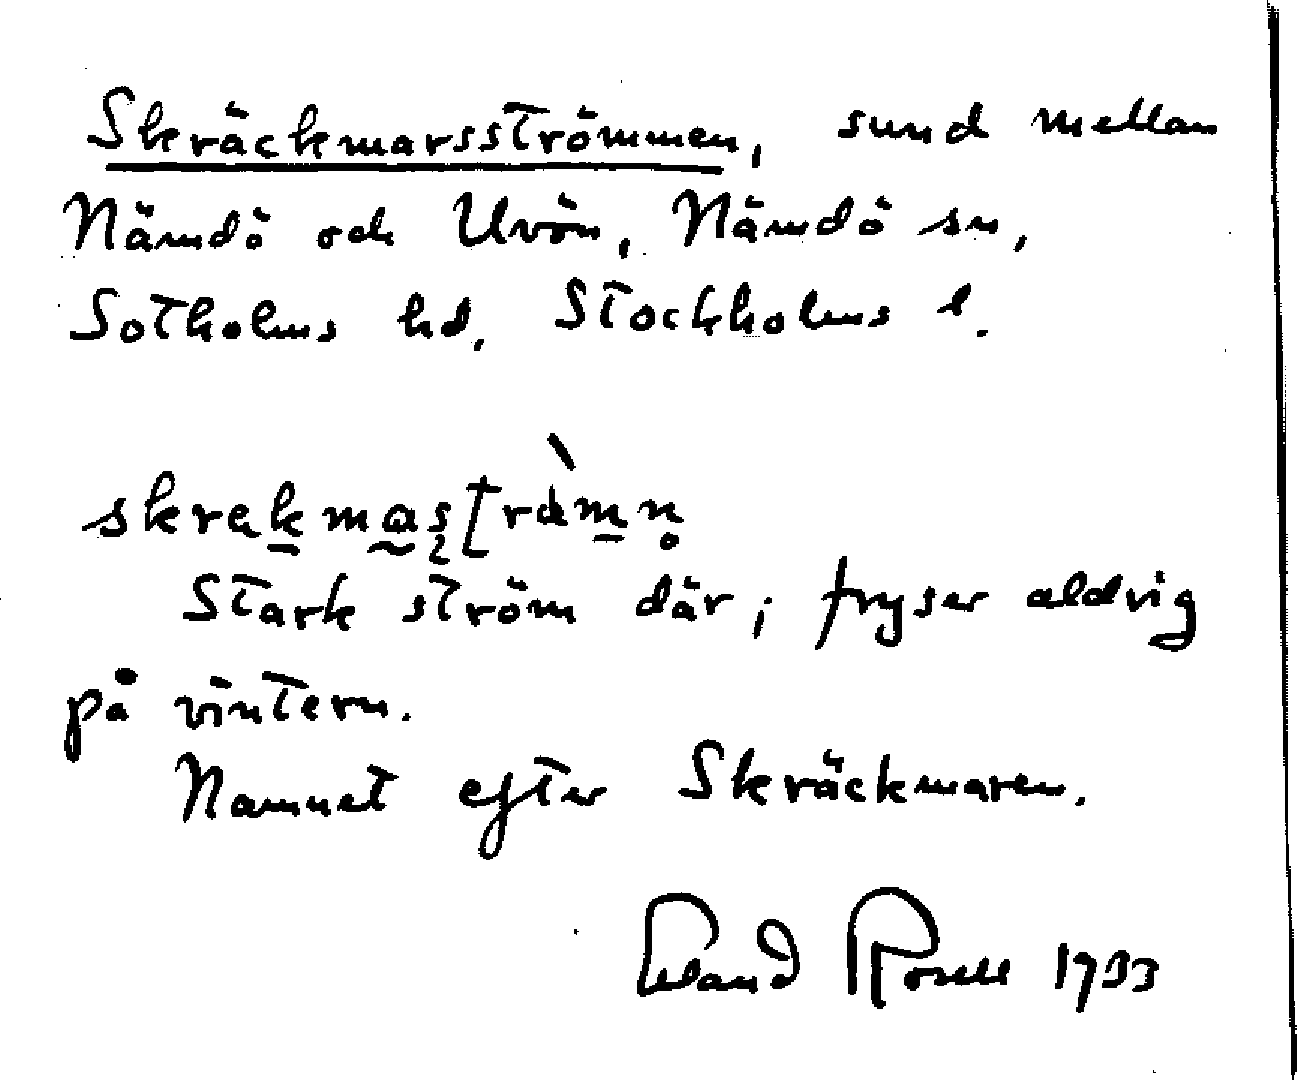 Skräckmarsströmmen, sund mellan
Nämdö och Uvön, Nämdö sn,
Sotholms hd. Stockholms l.
skrękmastrὰmn̥
Stark ström där; fryser aldrig
på vintern.
Namnet efter Skräckmaren.
Erland Rosell 1933